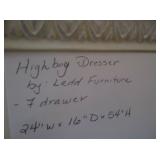 Highboy Dresser
by: Ladd Furniture
- 7 drawer
24"W x 16"D x 54"H